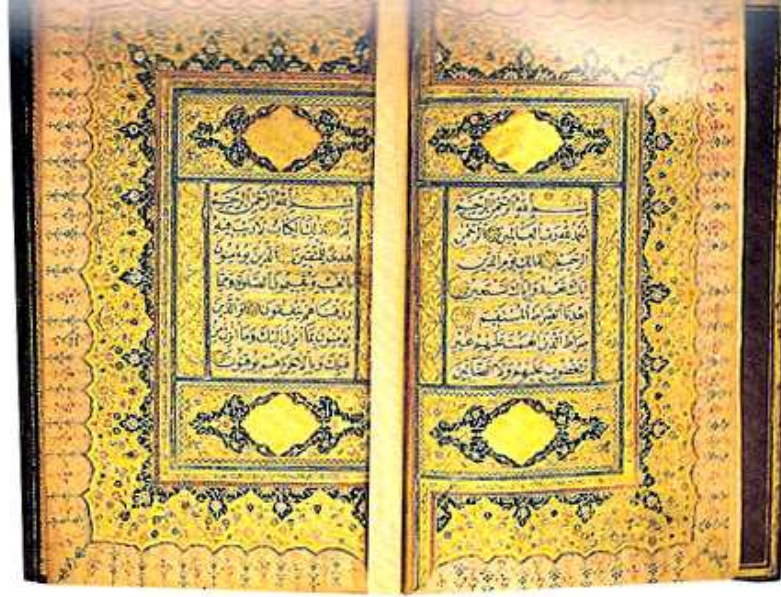 بسم الله الرحمن الرحيم
الحمد لله رب العالمين الرحمن
الرحيم مالك يوم الدين
إياك نعبد وإياك نستعين
اهدنا الصراط المستقيم
صراط الذين أنعمت عليهم غير
المغضوب عليهم ولا الضالين
بسم الله الرحمن الرحيم
الم ذلك الكتاب لا ريب فيه
هدى للمتقين الذين يؤمنون
بالغيب ويقيمون الصلوة ومما
رزقناهم ينفقون والذين
يؤمنون بما أنزل إليك وما أنزل من
قبلك وبالآخرة هم يوقنون